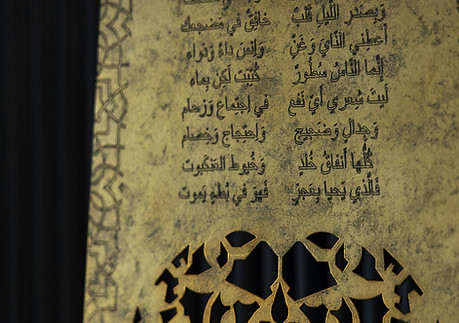 وَبِصَدْرِ اللَّيْلِ قَلْبٌ خَافِقٌ فِي مَضْجَعِكَ
أَعطِني النَّايَ وَغَنِّ وَانْسَ دَاءً وَدَوَاء
إِنَّما النَّاسُ سُطُورٌ كُتِبَتْ لَكِنْ بِمَاء
لَيتَ شِعْرِي أَيُّ نَفعٍ فِي اِجتِمَاعٍ وَزِحَام
وَجِدَالٍ وَضَجِيجٍ وَاحْتِجَاجٍ وَخِصَام
كُلُّهَا أَنفَاقُ خُلدٍ وَخُيوطُ العَنكَبوت
فَالَّذِي يَحيَا بِعَجزٍ فَهْوَ فِي بُطءٍ يَموت